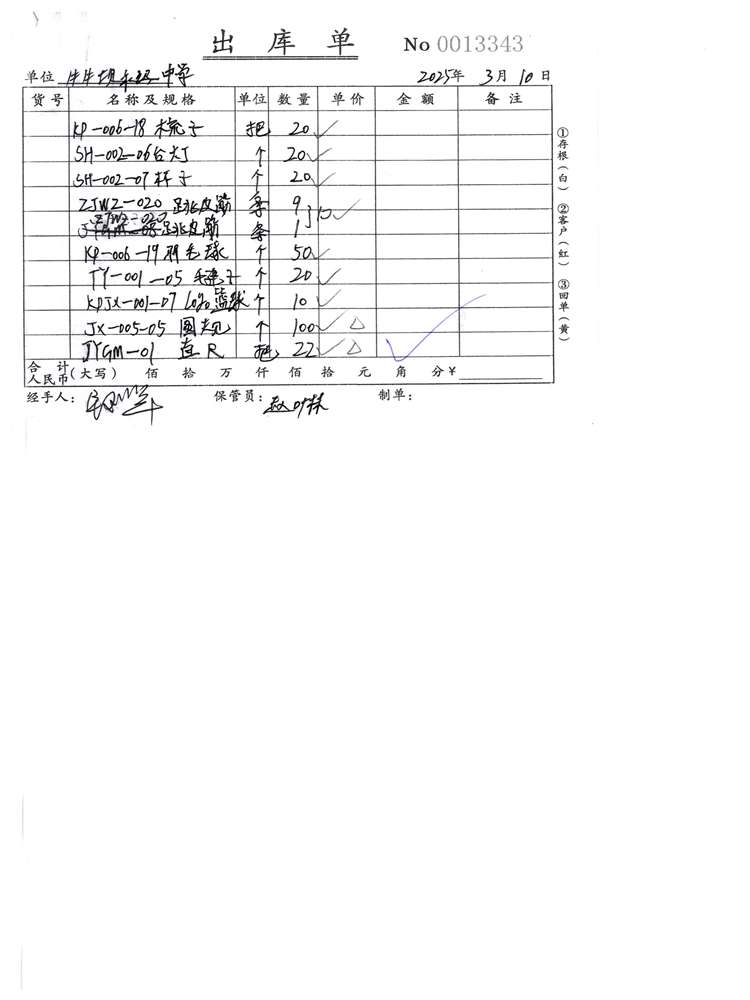 出库单 No 0013343
单位 牛牛坝 中学 2025年 3月 10日
货号 名称及规格 单位 数量 单价 金额 备注
KP-006-18 梳子 把 20 ✓
SH-002-06台灯 个 20 ✓
SH-002-07杯子 个 20 ✓
ZJWZ-020 跳皮筋 条 9 } 10 ✓
ZJWZ-020 跳皮筋 条 1
KP-006-19 羽毛球 个 50 ✓
TY-001-05 毽子 个 20 ✓
KPJX-001-07 logo篮球 个 10 ✓
JX-005-05 圆规 个 100 ✓ △
JYGM-01 直R 把 22 ✓ △
合计
人民币(大写) 佰 拾 万 仟 佰 拾 元 角 分 ¥
经手人: 保管员: 制单:
①存根(白) ②客户(红) ③回单(黄)